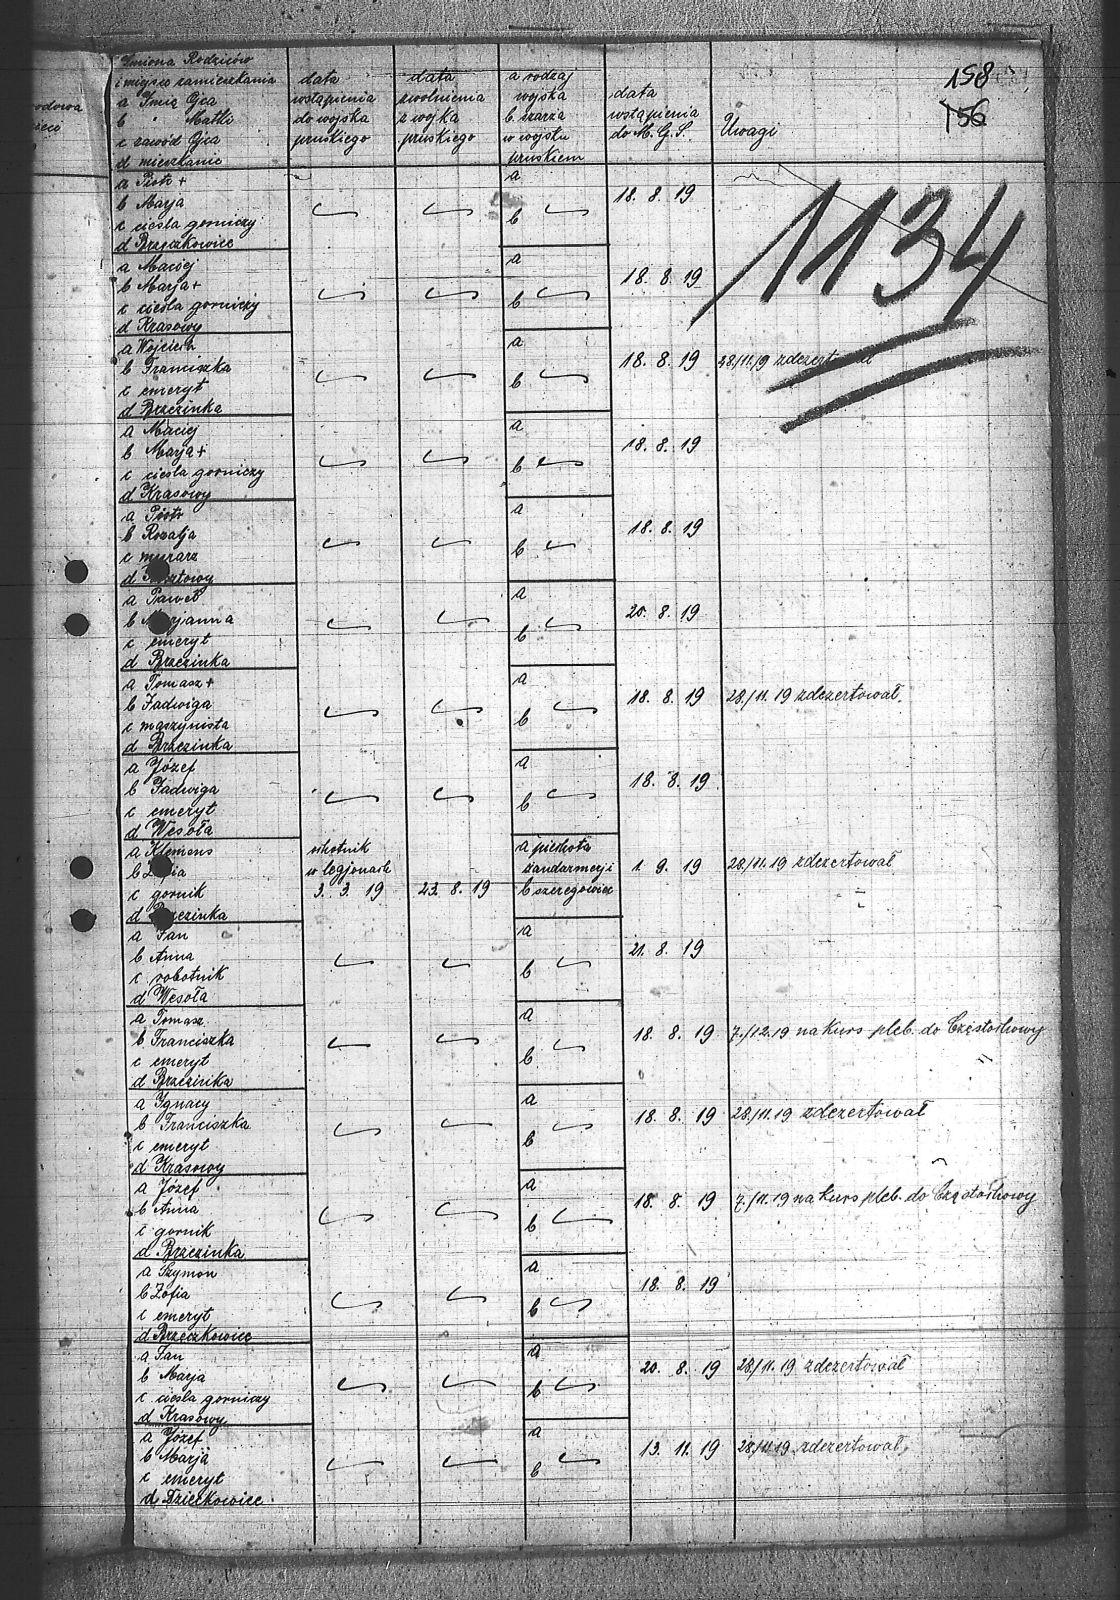 158
156
1134
rodowa
Imiona Rodziców
i miejsce zamieszkania
a Imię Ojca
b " Matki
c zawód Ojca
d mieszkanie
data
wstąpienia
do wojska
pruskiego
data
zwolnienia
z wojka
pruskiego
a rodzaj
wojska
b szarża
w wojsku
pruskiem
data
wstąpienia
do M. G. S.
Uwagi
a Piotr +
b Marja
c cieśla gorniczy
d Brzęczkowice
a
b
18. 8. 19
a Maciej
b Marja +
c cieśla gorniczy
d Krasowy
a
b
18. 8. 19
a Wojciech
b Franciszka
c emeryt
d Brzezinka
a
b
18. 8. 19
28/11.19 zdezertował
a Maciej
b Marja +
c cieśla gorniczy
d Krasowy
a
b
18. 8. 19
a Piotr
b Rozalja
c murarz
d Kosztowy
a
b
18. 8. 19
a Paweł
b Marjanna
c emeryt
d Brzezinka
a
b
20. 8. 19
a Tomasz +
b Jadwiga
c maszynista
d Brzezinka
a
b
18. 8. 19
28/11.19 zdezertował
a Józef
b Jadwiga
c emeryt
d Wesoła
a
b
18. 8. 19
a Klemens
b Zofia
c gornik
d Brzezinka
ochotnik
w legjonach
3. 3. 19
23. 8. 19
a piechota
żandarmerji
b szeregowiec
1. 9. 19
28/11.19 zdezertował
a Jan
b Anna
c robotnik
d Wesoła
a
b
21. 8. 19
a Tomasz
b Franciszka
c emeryt
d Brzezinka
a
b
18. 8. 19
7./12.19 na kurs pleb. do Częstochowy
a Ignacy
b Franciszka
c emeryt
d Krasowy
a
b
18. 8. 19
28/11.19 zdezertował
a Józef
b Anna
c gornik
d Brzezinka
a
b
18. 8. 19
7./11.19 na kurs pleb. do Częstochowy
a Szymon
b Zofia
c emeryt
d Brzęczkowice
a
b
18. 8. 19
a Jan
b Marja
c cieśla gorniczy
d Krasowy
a
b
20. 8. 19
28/11.19 zdezertował
a Józef
b Marja
c emeryt
d Dziećkowice
a
b
13. 11. 19
28/11.19 zdezertował